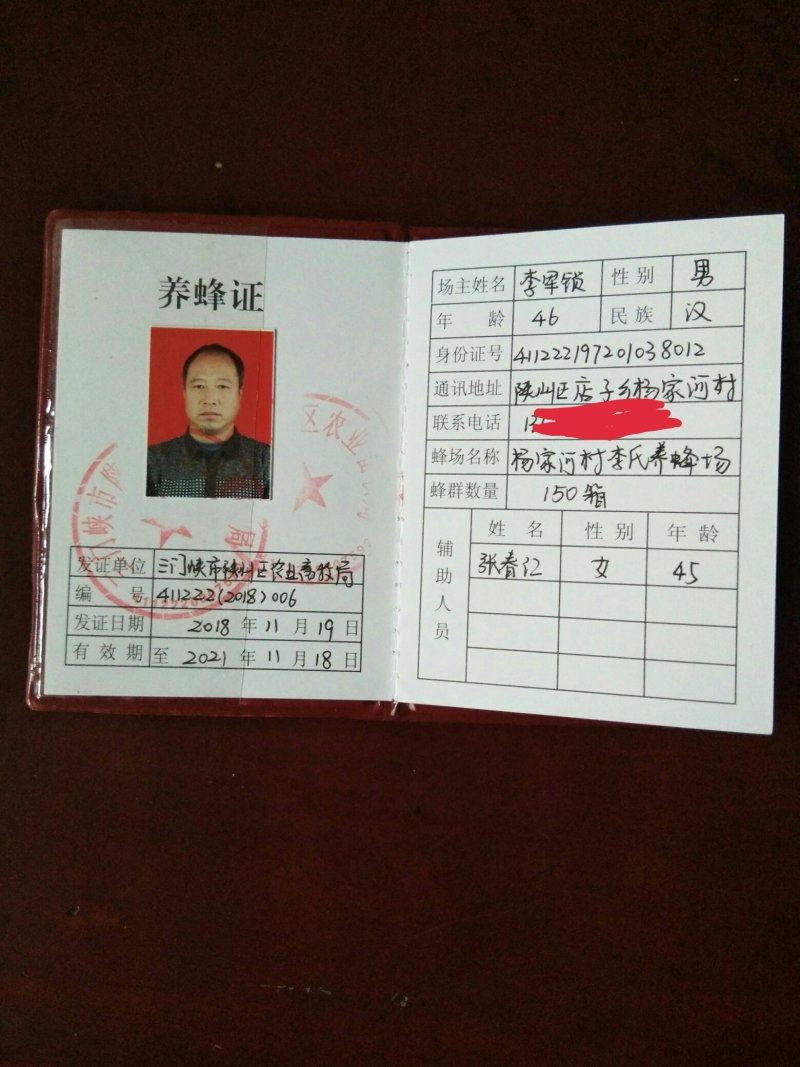 养蜂证
发证单位 三门峡市陕州区农业畜牧局
编 号 411222(2018)006
发证日期 2018 年 11 月 19 日
有 效 期 至 2021 年 11 月 18 日
场主姓名 李军锁 性 别 男
年 龄 46 民 族 汉
身份证号 411222197201038012
通讯地址 陕州区店子乡杨家河村
联系电话 1
蜂场名称 杨家河村李氏养蜂场
蜂群数量 150箱
辅助人员
姓 名 性 别 年 龄
张春仁 女 45